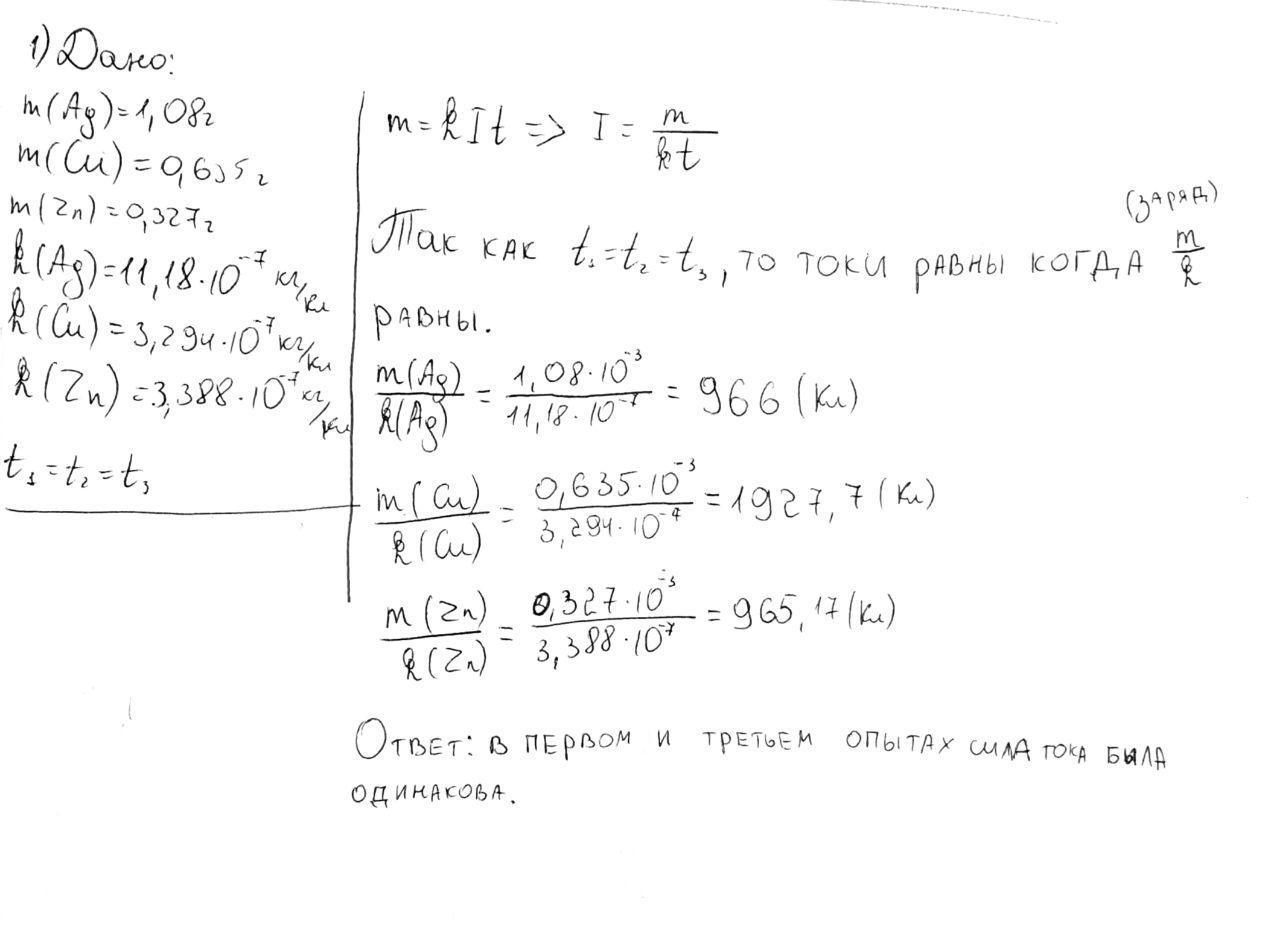 1) Дано:
m(Ag)=1,08г
m(Cu)=0,635г
m(Zn)=0,327г
k(Ag)=11,18·10⁻⁷ кг/Кл
k(Cu)=3,294·10⁻⁷ кг/Кл
k(Zn)=3,388·10⁻⁷ кг/Кл
t₁=t₂=t₃
m=kIt => I = m/kt
(заряд)
Так как t₁=t₂=t₃, то токи равны когда m/k
равны.
m(Ag)/k(Ag) = 1,08·10⁻³/11,18·10⁻⁷ = 966 (Кл)
m(Cu)/k(Cu) = 0,635·10⁻³/3,294·10⁻⁷ = 1927,7 (Кл)
m(Zn)/k(Zn) = 0,327·10⁻³/3,388·10⁻⁷ = 965,17 (Кл)
Ответ: в первом и третьем опытах сила тока была
одинакова.